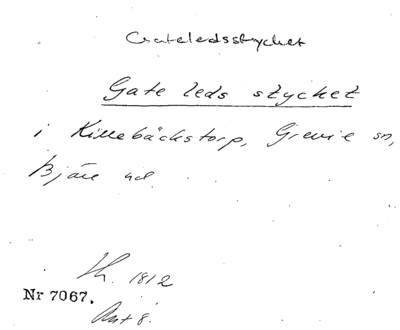 Gateledsstycket
Gate leds stycket
i Killebäckstorp, Grevie sn,
Bjäre hd.
Lh. 1812
Nr 7067.
Akt 8.